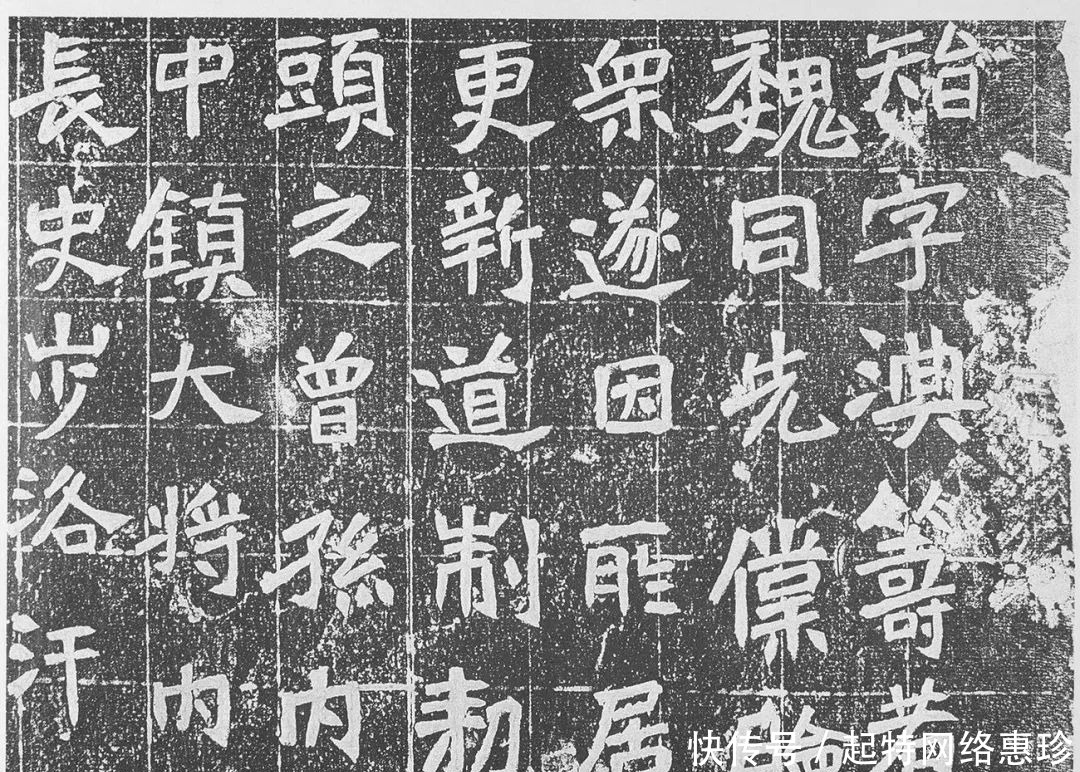 智字淟籌
魏同先僕
眾遂因所居
更新道制勅
頭之曾孫内
中鎮大將内
長史步洛汗
快传号 / 起特网络惠珍